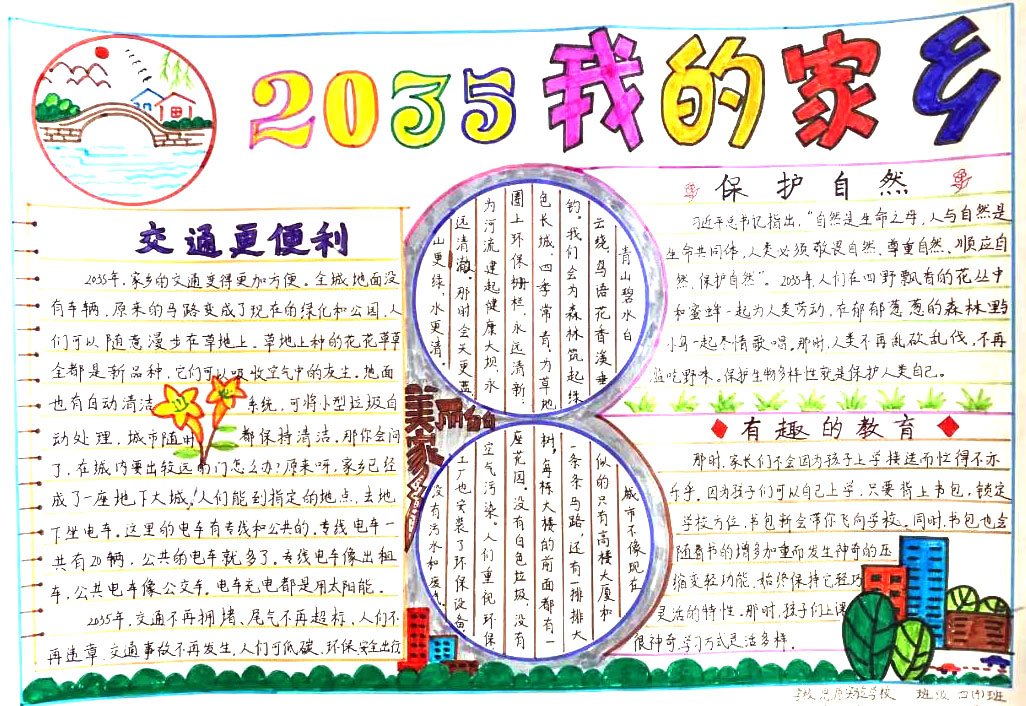 2035我的家乡
交通更便利
2035年，家乡的交通变得更加方便。全城地面没
有车辆，原来的马路变成了现在的绿化和公园，人
们可以随意漫步在草地上。草地上种的花花草草
全都是新品种，它们可以吸收空气中的灰尘。地面
也有自动清洁系统，可将小型垃圾自
动处理，城市随时都保持清洁。那你会问
了，在城内要出较远的门怎么办？原来呀，家乡已经
成了一座地下大城，人们能到指定的地点，去地
下坐电车。这里的电车有专线和公共的，专线电车一
共有20辆，公共的电车就多了。专线电车像出租
车，公共电车像公交车。电车充电都是用太阳能。
2035年，交通不再拥堵、尾气不再超标，人们不
再违章、交通事故不再发生，人们可低碳、环保、安全出行
青山碧水白
云绕，鸟语花香溪垂
钓。我们会为森林筑起绿
色长城，四季常青，为草地
圈上环保栅栏，永远清新，
为河流建起健康大坝，永
远清澈。那时会天更蓝
山更绿，水更清。
美丽的
家乡
城市不像现在
似的只有高楼大厦和
一条条马路，还有一排排大
树，每栋大楼的前面都有一
座花园。没有白色垃圾，没有
空气污染。人们重视环保
工厂也安装了环保设备，
没有污水和废气。
保护自然
习近平总书记指出，“自然是生命之母，人与自然是
生命共同体，人类必须敬畏自然、尊重自然、顺应自
然、保护自然”。2035年人们在四野飘香的花丛中
和蜜蜂一起为人类劳动，在郁郁葱葱的森林里与
小鸟一起尽情歌唱。那时，人类不再乱砍乱伐，不再
滥吃野味，保护生物多样性就是保护人类自己。
有趣的教育
那时，家长们不会因为孩子上学接送而忙得不亦
乐乎。因为孩子们可以自己上学，只要背上书包，锁定
学校方位，书包就会带你飞向学校。同时，书包也会
随着书的增多加重而发生神奇的压
缩变轻功能，始终保持它轻巧
灵活的特性。那时，孩子们上课
很神奇，学习方式灵活多样。
学校 实验学校 班级 四(4)班